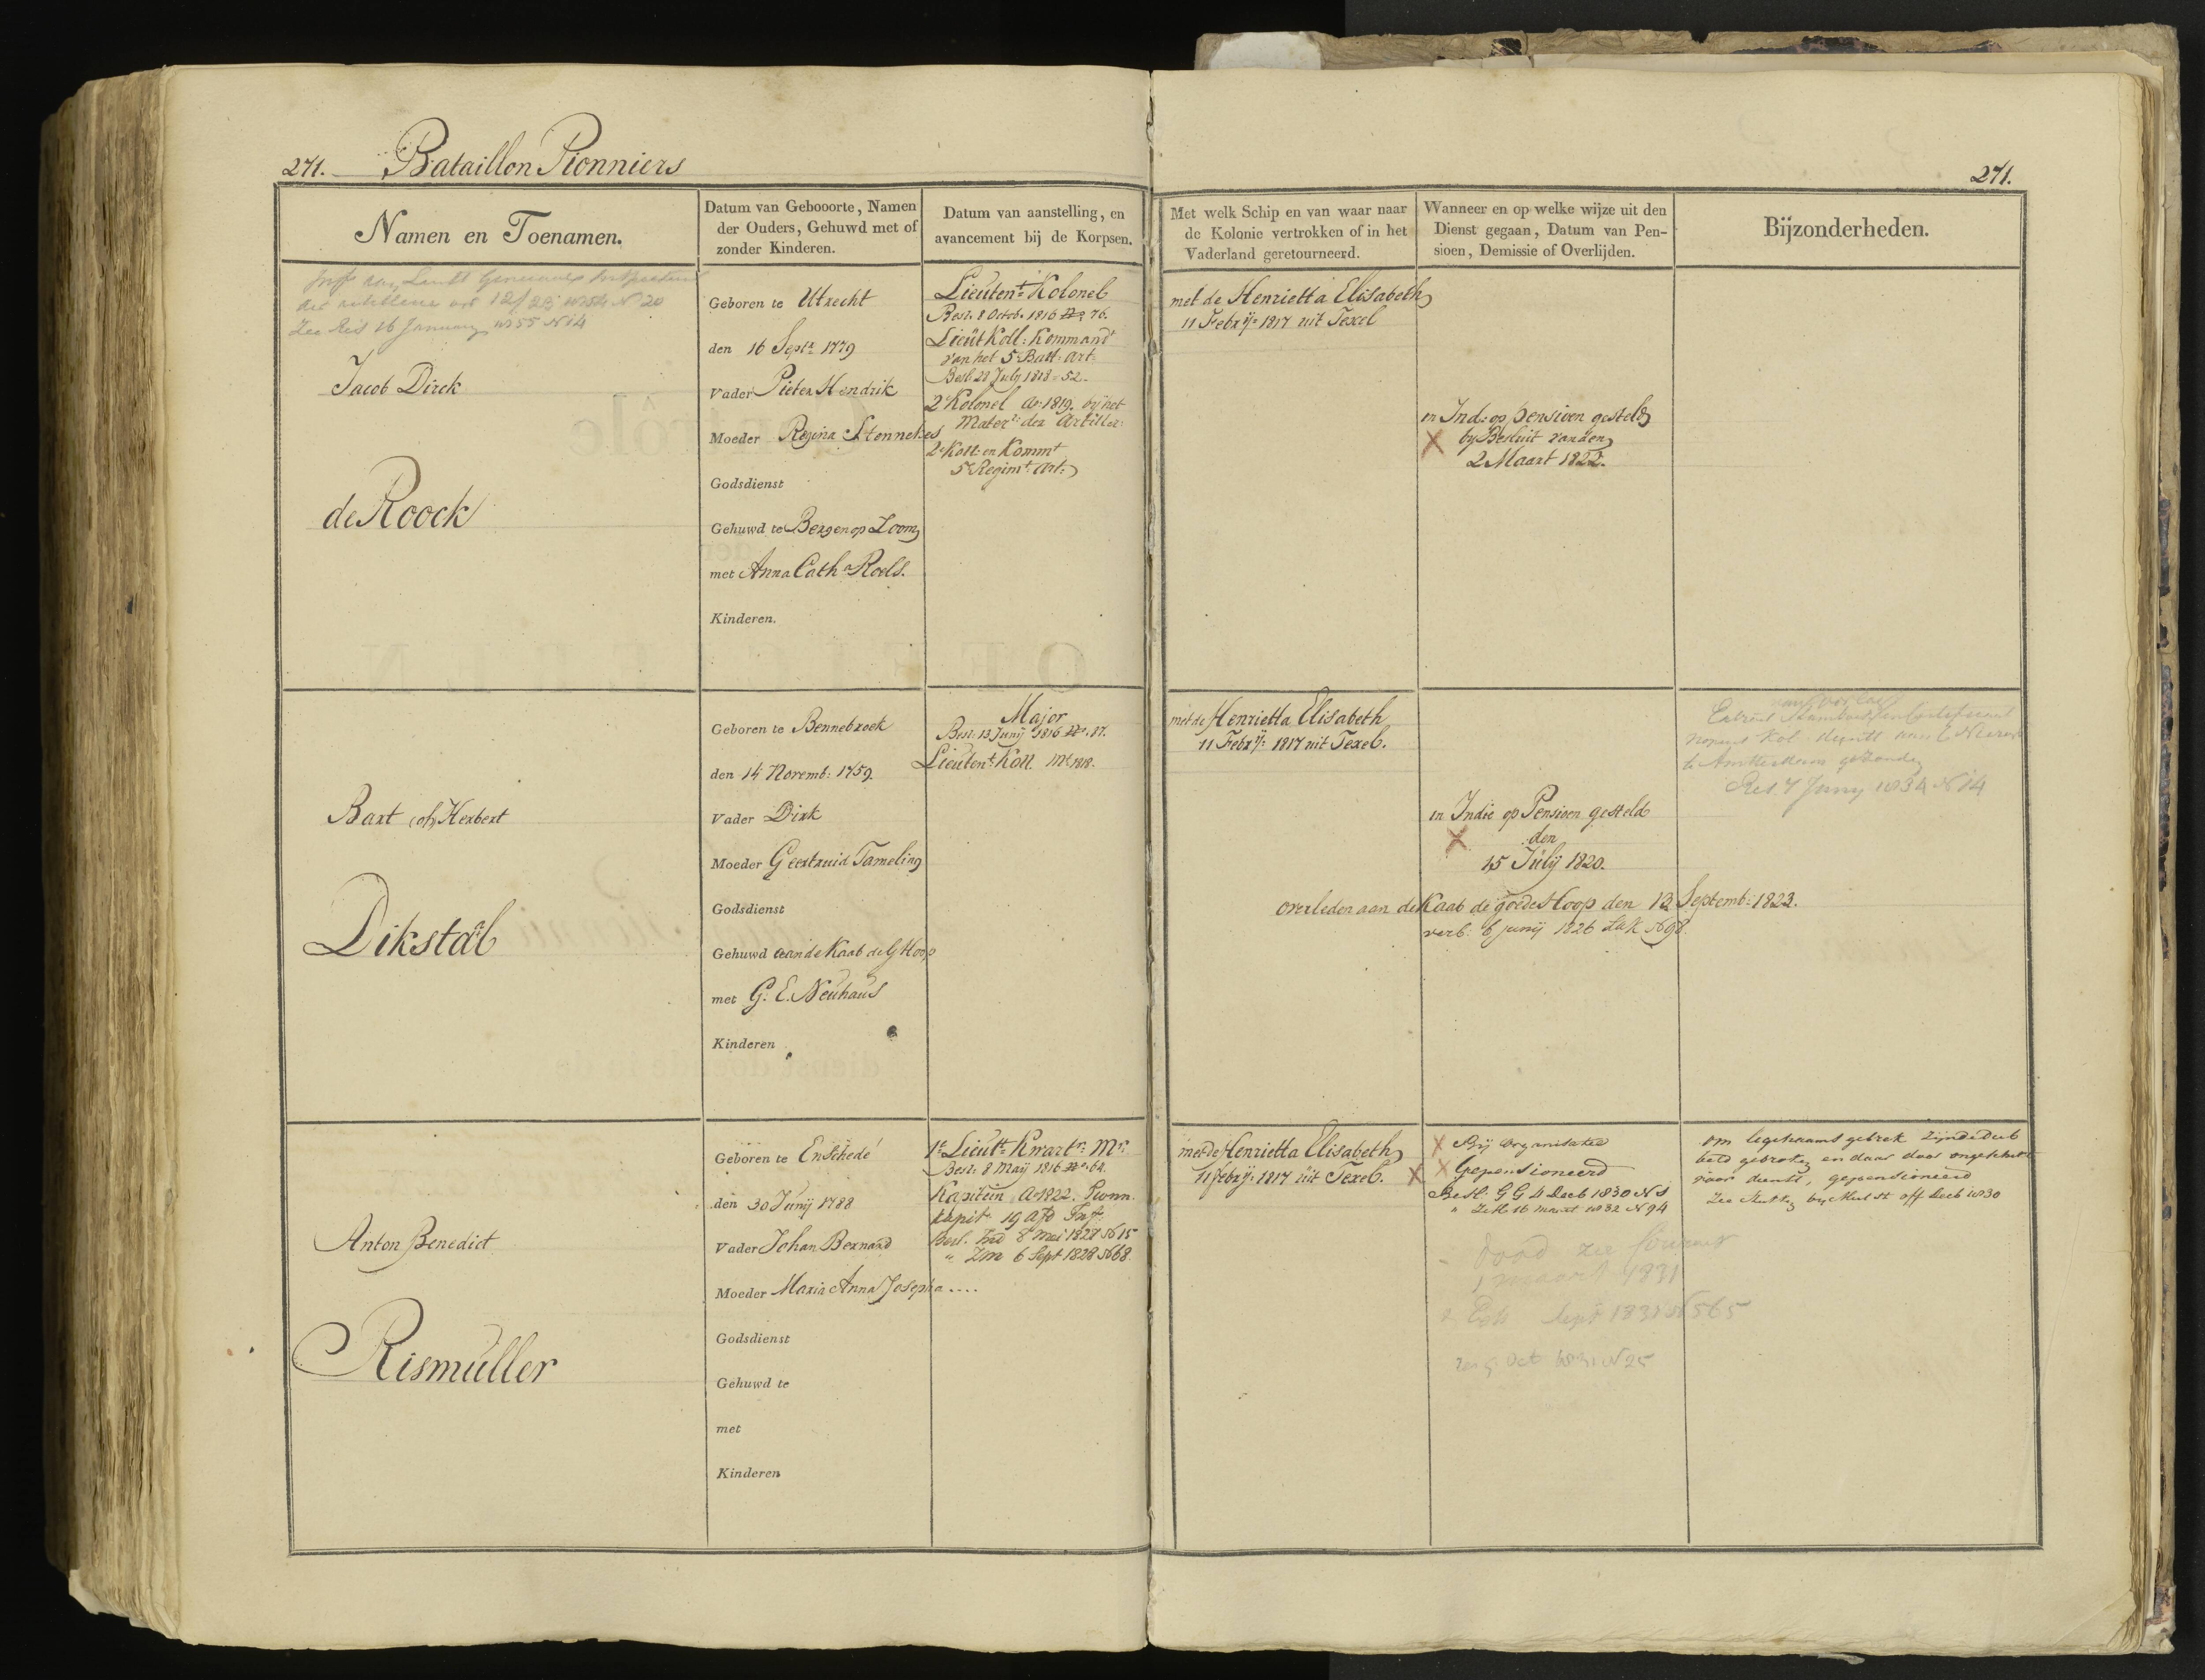 271. Bataillon Pionniers
271.
Namen en Toenamen.
Datum van Gebooorte, Namen
der Ouders, Gehuwd met of
zonder Kinderen.
Datum van aanstelling, en
avancement bij de Korpsen.
Met welk Schip en van waar naar
de Kolonie vertrokken of in het
Vaderland geretourneerd.
Wanneer en op welke wijze uit den
Dienst gegaan, Datum van Pen-
sioen, Demissie of Overlijden.
Bijzonderheden.
Zee Res 16 January 1855 N 14
Jacob Dirck
de Roock
Geboren te Utrecht
den 16 Septr 1779
Vader Pieter Hendrik
Moeder Regina Stennekes
Godsdienst
Gehuwd te Bergen op Zoom
met Anna Catha Roels.
Kinderen.
Lieutent Kolonel
Besl: 8 Octob. 1816 No 76.
Lieut Koll: Kommandt
van het 5e Batt: Art:
Besl 28 July 1818 - 52.
2e Kolonel Ao 1819. bij het
Materl: der Artiller:
2e Koll: en Kommt
5e Regimt: Art:
met de Henrietta Elisabeth
11 Febrij: 1817 uit Texel
in Ind: op pensioen gesteld
by Besluit van den
2 Maart 1822.
Bart (of) Herbert
Dikstal
Geboren te Bennebroek
den 14 Novemb: 1759.
Vader Dirk
Moeder Geertruid Tameling
Godsdienst
Gehuwd aan de Kaab de G Hoop
met G. E. Neuhaus
Kinderen
Major
Besl: 13 Junij 1816 No. 17.
Lieutent: Koll. 1818.
met de Henrietta Elisabeth
11 Febrij: 1817 uit Texel.
in Indie op Pensioen gesteld
den
15 Julij 1820.
overleden aan de Kaab de goede Hoop den 13 Septemb: 1823.
verb. 6 junij 1826 LaK N 98.
te Amsterdam gezonden
Res 7 Juny 1834 N 14
Anton Benedict
Rismuller
Geboren te Enschedé
den 30 Junij 1788
Vader Johan Bernard
Moeder Maria Anna Josepha ....
Godsdienst
Gehuwd te
met
Kinderen
1e Lieutt: Kwartr: Mr
Besl: 8 Maij 1816 No. 64.
Kapitein Ao 1822. Pionn.
kapitn 19 Afd Inf:
Besl. Ind 8 Mei 1828 N 15
" Zm 6 Sept 1828 N 68.
met de Henrietta Elisabeth
11 Febrij: 1817 uit Texel.
Bij organisatie
Gepensioneerd
Besl. GG 4 Decb 1830 N 1
" 16 maart 1832 N 94
1 maart 1831
Sept 1831 N 565
Oct 1831 N 25
om ligchaamsgebrek zijnde
gebroken en daar door ongeschikt
voor dienst, gepensioneerd